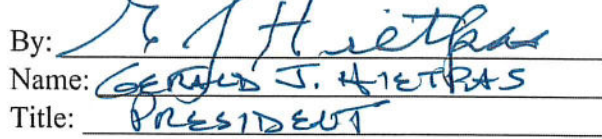 By: G J Hietpas
Name: GERALD J. HIETPAS
Title: PRESIDENT